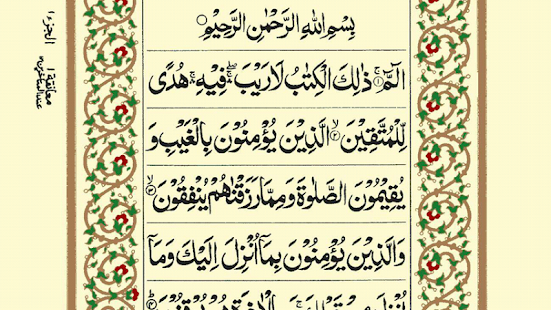 بِسْمِ اللهِ الرَّحْمٰنِ الرَّحِيْمِ
الٓمّٓ ۚ ذٰلِكَ الْكِتٰبُ لَا رَيْبَ ۛ فِيْهِ ۛ هُدًى
لِّلْمُتَّقِيْنَ ۙ الَّذِيْنَ يُؤْمِنُوْنَ بِالْغَيْبِ وَ
يُقِيْمُوْنَ الصَّلٰوةَ وَمِمَّا رَزَقْنٰهُمْ يُنْفِقُوْنَ ۙ
وَالَّذِيْنَ يُؤْمِنُوْنَ بِمَآ اُنْزِلَ اِلَيْكَ وَمَآ
الجزء ١
معانقة ١